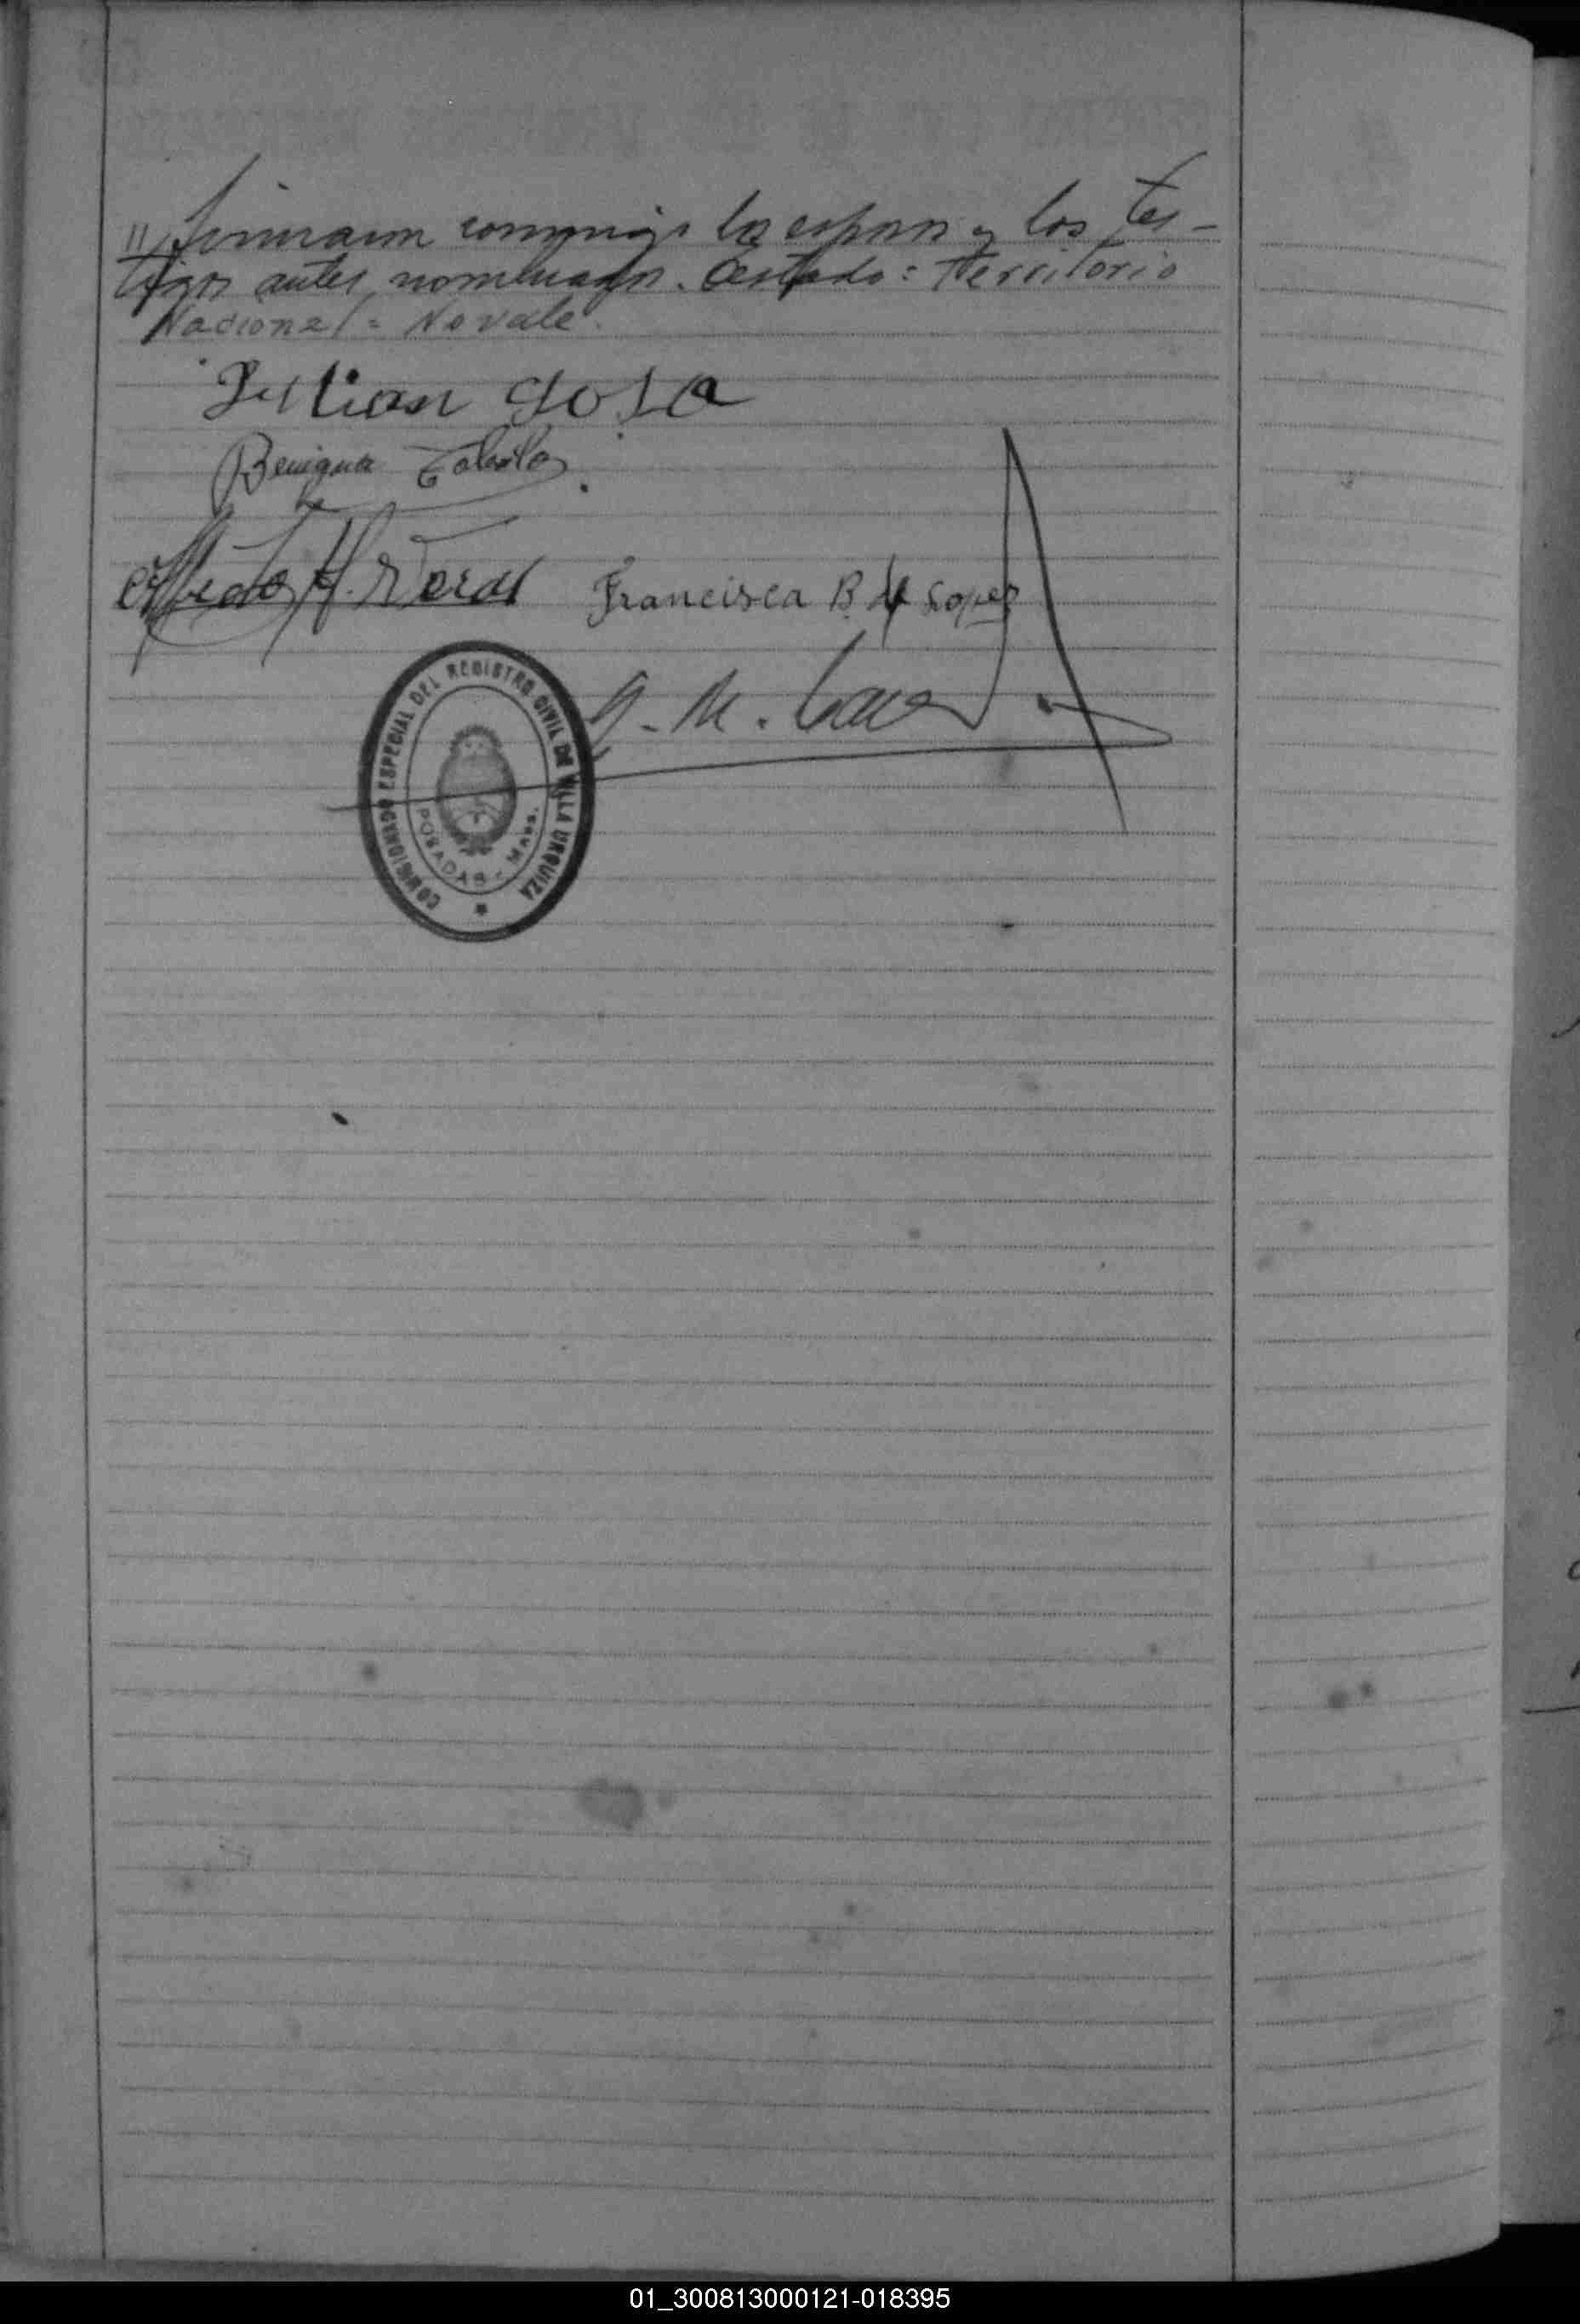 " firmaron conmigo los esposos y los tes-
tigos antes nombrados. Testado: Territorio
Nacional = No vale.
Julian Sosa
Benigna
Francisca B. de Lopez
COMISIONADO ESPECIAL DEL REGISTRO CIVIL DE VILLA URQUIZA
POSADAS - Mnes.
01_300813000121-018395